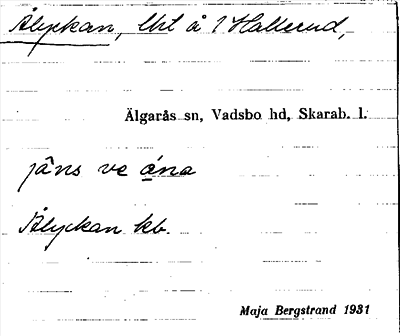 Ålyckan, lht å 1 Hallerud,
Älgarås sn, Vadsbo hd, Skarab. l.
jâns ve ána
Ålyckan kb.
Maja Bergstrand 1931